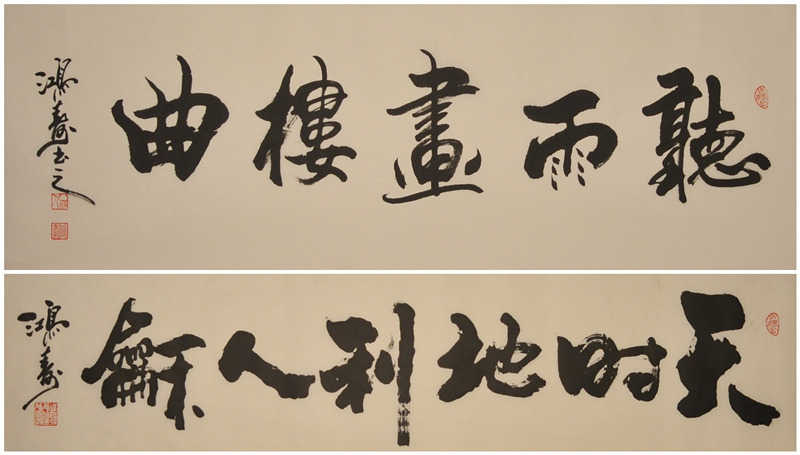 聽雨畫樓曲
鴻壽書之
天时地利人龢
鴻壽